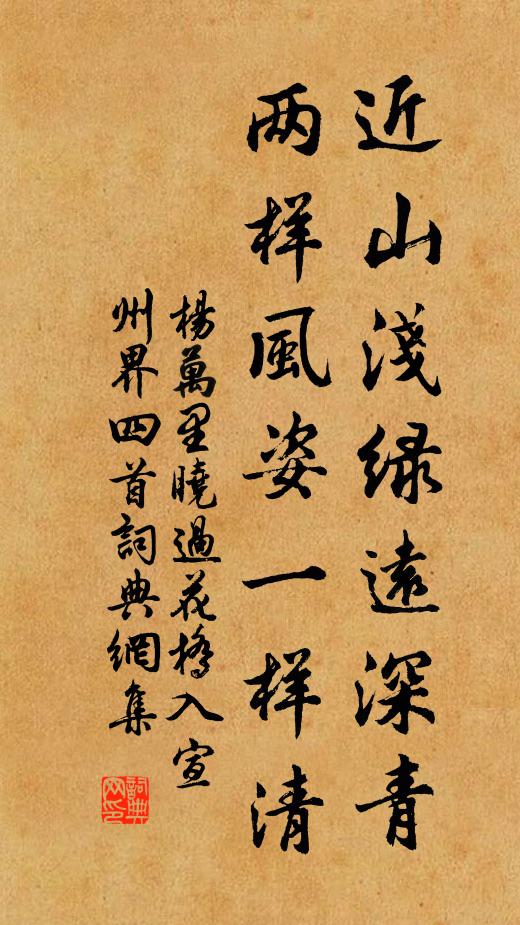 近山淺绿遠深青
两样風姿一样清
楊萬里曉過花橋入宣
州界四首詞典網集
詞典网印